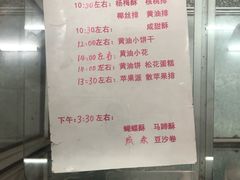 10:30左右: 杨梅酥 核桃排
椰丝排 黄油排
10:30左右: 咸甜酥
12:00左右: 黄油小饼干
14:00左右 黄油小花
14:00左右: 黄油饼 松花蛋糕
13:30左右: 苹果派 散苹果排
下午: 3:30左右: 蝴蝶酥 马蹄酥
豆沙卷